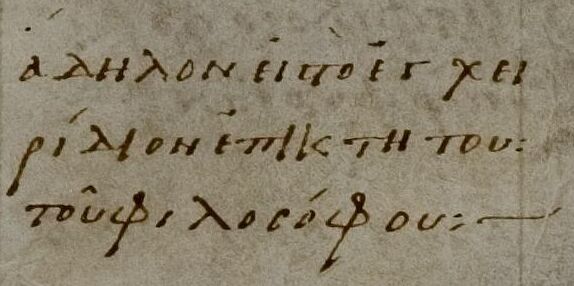 ἄδηλον εἰ τὸ ἐγχει
ρίδιον ἐπικτήτου:
τοῦ φιλοσόφου:—